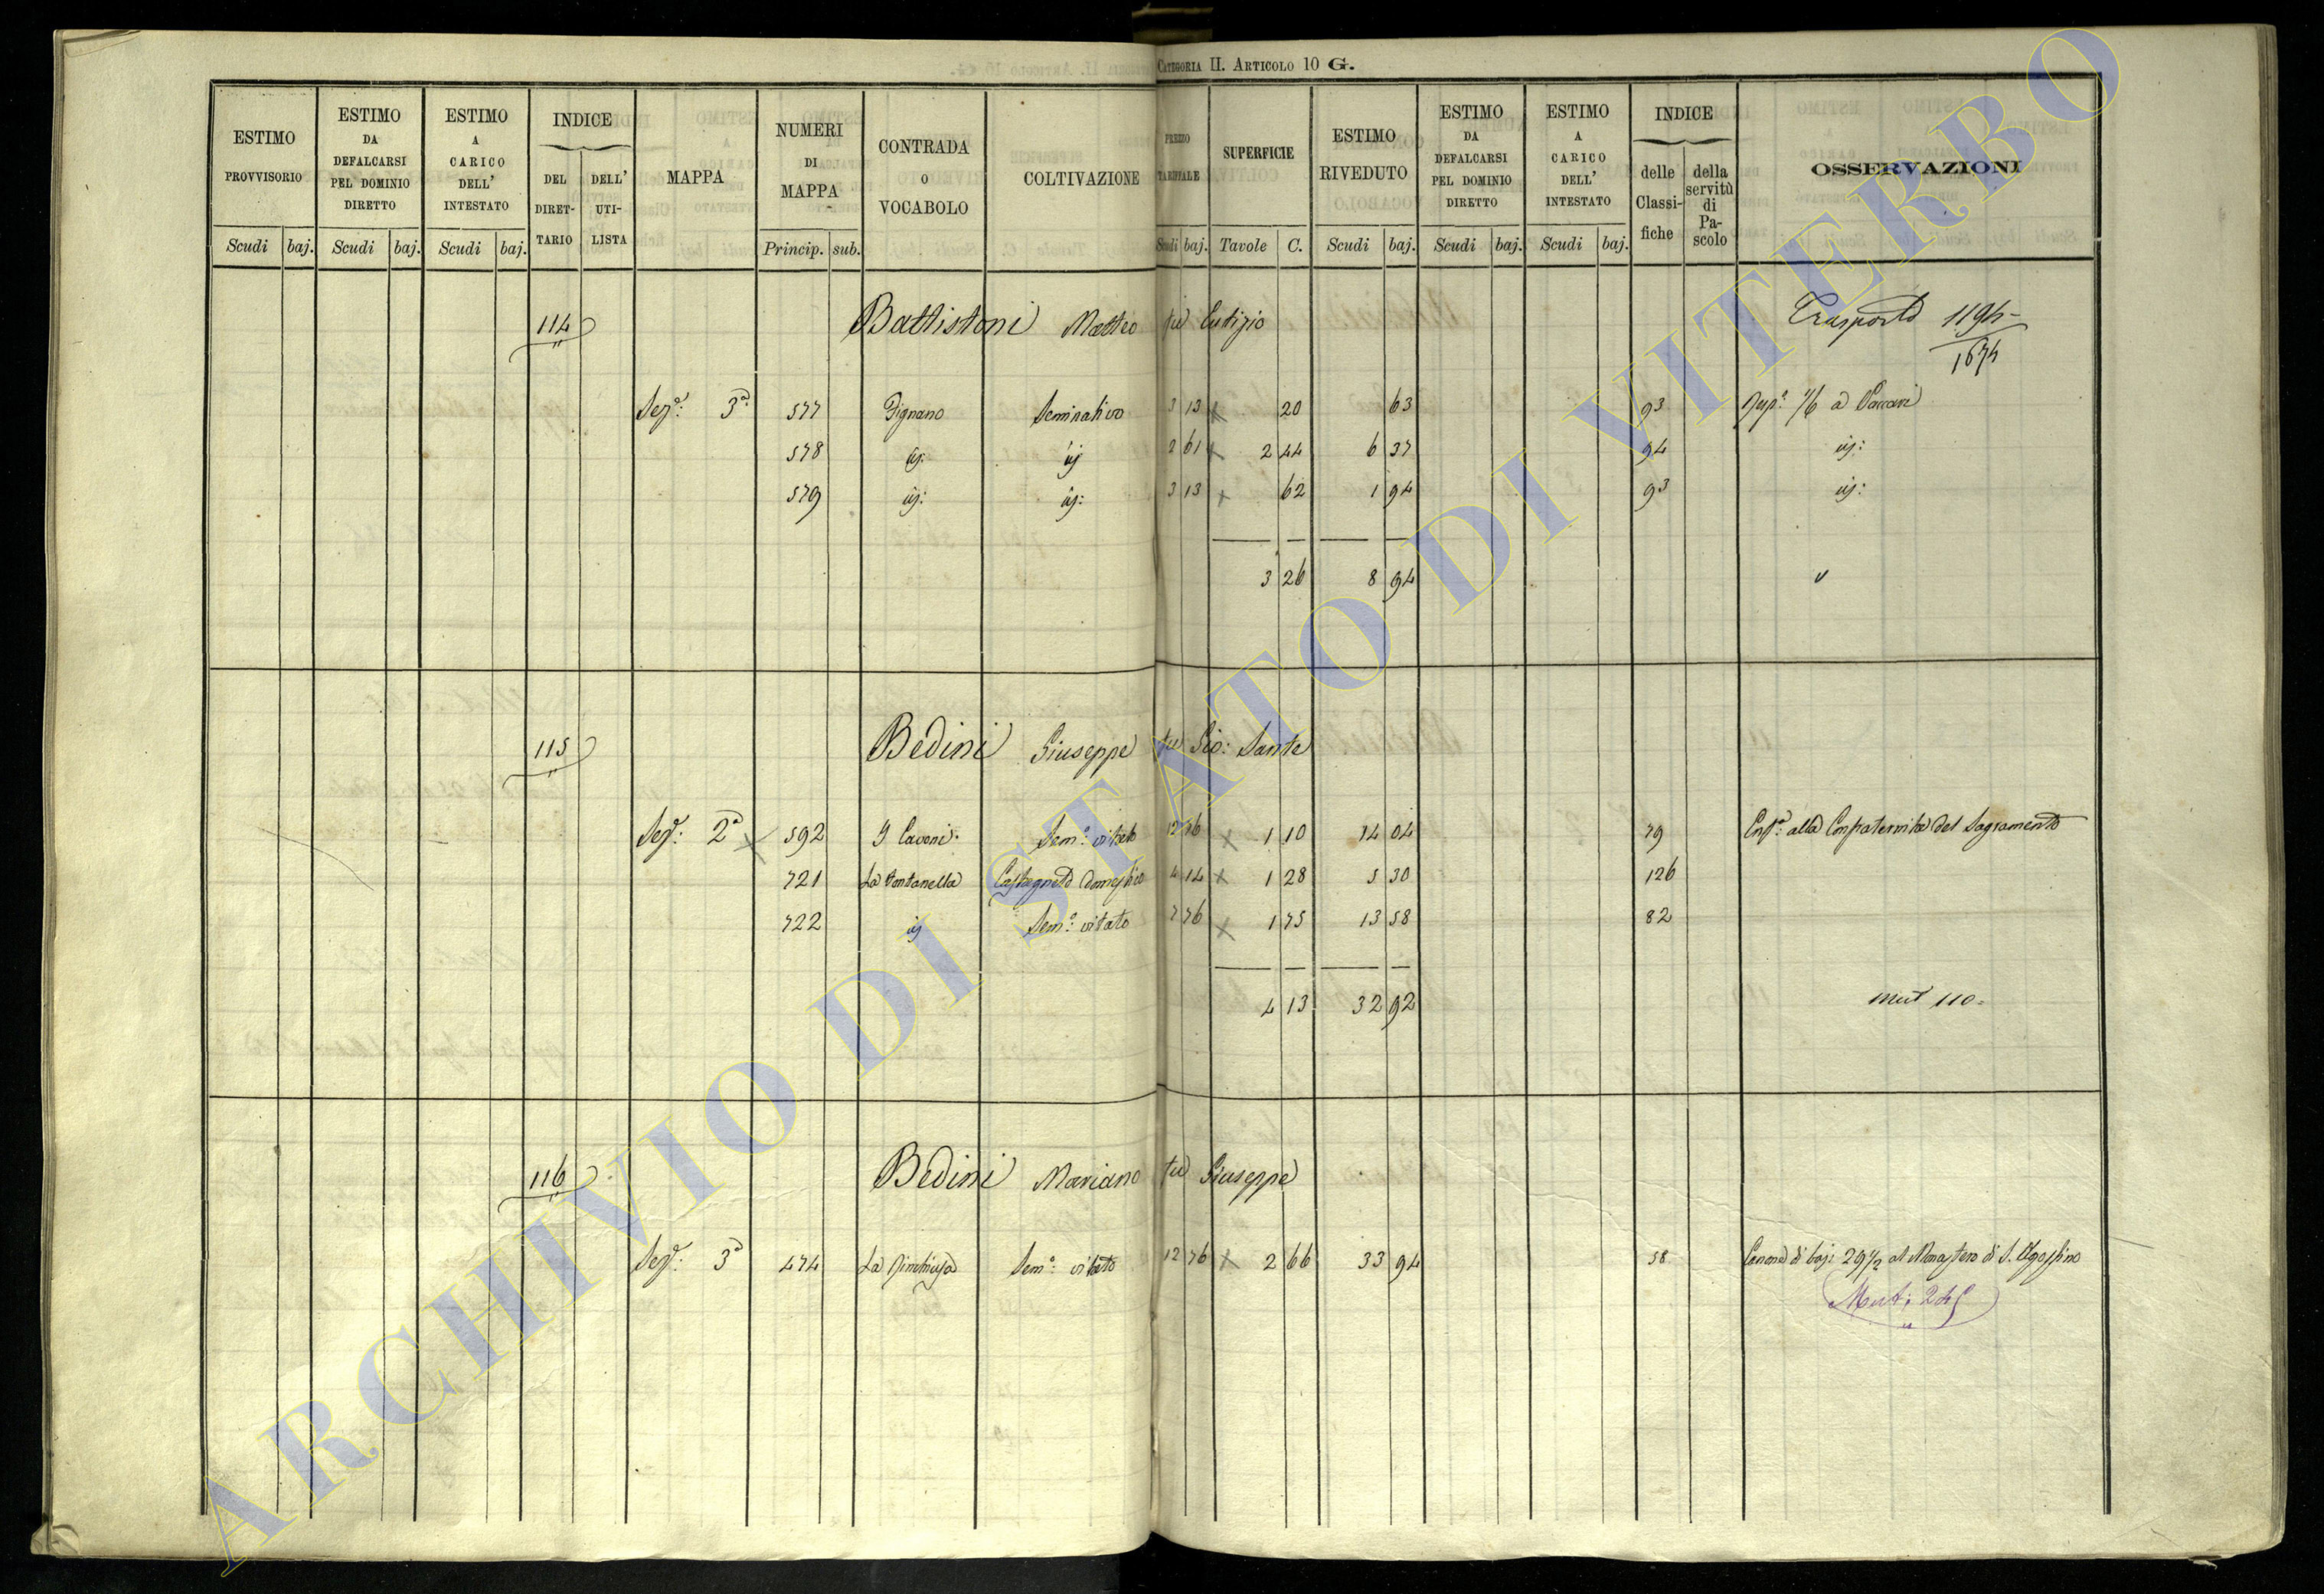 CATEGORIA II. ARTICOLO 10 G.
ESTIMO PROVVISORIO Scudi baj. ESTIMO DA DEFALCARSI PEL DOMINIO DIRETTO Scudi baj. ESTIMO A CARICO DELL' INTESTATO Scudi baj. INDICE DEL DIRET- TARIO DELL' UTI- LISTA MAPPA NUMERI DI MAPPA Princip. sub. CONTRADA O VOCABOLO COLTIVAZIONE PREZZO TARIFFALE Scudi baj. SUPERFICIE Tavole C. ESTIMO RIVEDUTO Scudi baj. ESTIMO DA DEFALCARSI PEL DOMINIO DIRETTO Scudi baj. ESTIMO A CARICO DELL' INTESTATO Scudi baj. INDICE delle Classi- fiche della servitù di Pa- scolo OSSERVAZIONI
114 Battistoni Matteo fu Eutizio Trasporto 1194
1674
Sez.e: 3a. 577 Pignano Seminativo 3 13 x 20 63 93 1/6 a
578 id: id 2 61 x 2 44 6 37 94 id:
579 id: id: 3 13 x 62 1 94 93 id:
3 26 8 94
115 Bedini Giuseppe fu Gio: Sante
Sez.e: 2a x 592 I Cavoni Sem:o vitato 12 76 x 1 10 14 04 79 Enf.a alla Confraternita del Sagramento
721 La Fontanella Castagneto domestico 4 14 x 1 28 5 30 126
722 id Sem:o vitato 7 76 x 1 75 13 58 82
4 13 32 92 mut 110
116 Bedini Mariano fu Giuseppe
Sez.e: 3a 474 La Sem:o vitato 12 76 x 2 66 33 94 58 Canone di baj: 29 1/2 al Monastero di S. Agostino
Mut: 245
ARCHIVIO DI STATO DI VITERBO